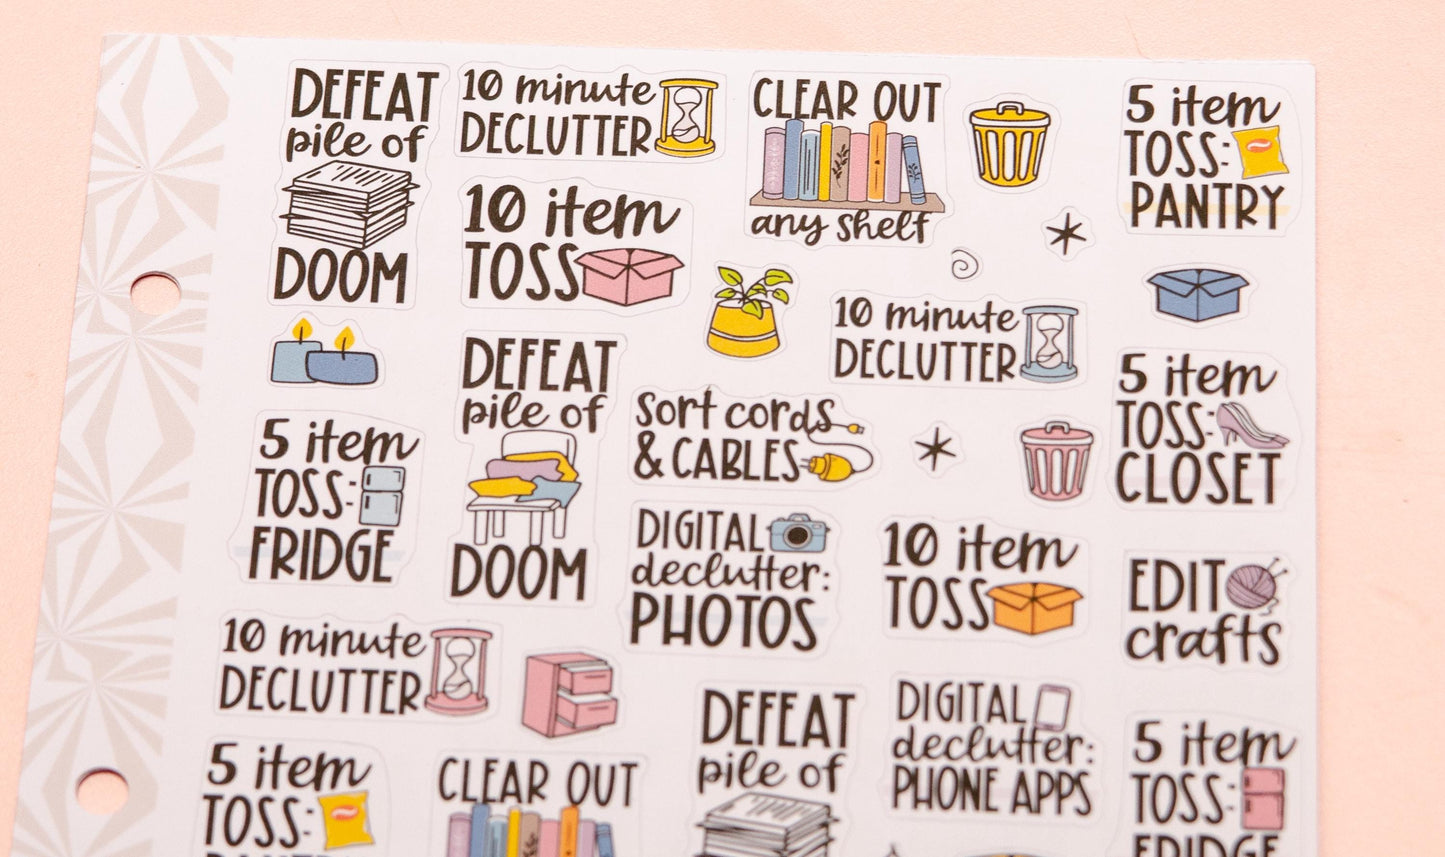 DEFEAT
pile of
DOOM
10 minute
DECLUTTER
CLEAR OUT
any shelf
5 item
TOSS:
PANTRY
10 item
TOSS
10 minute
DECLUTTER
5 item
TOSS:
CLOSET
DEFEAT
pile of
DOOM
sort cords
& CABLES
5 item
TOSS:
FRIDGE
DIGITAL
declutter:
PHOTOS
10 item
TOSS
EDIT
crafts
10 minute
DECLUTTER
DEFEAT
pile of
DIGITAL
declutter:
PHONE APPS
5 item
TOSS:
FRIDGE
5 item
TOSS:
CLEAR OUT